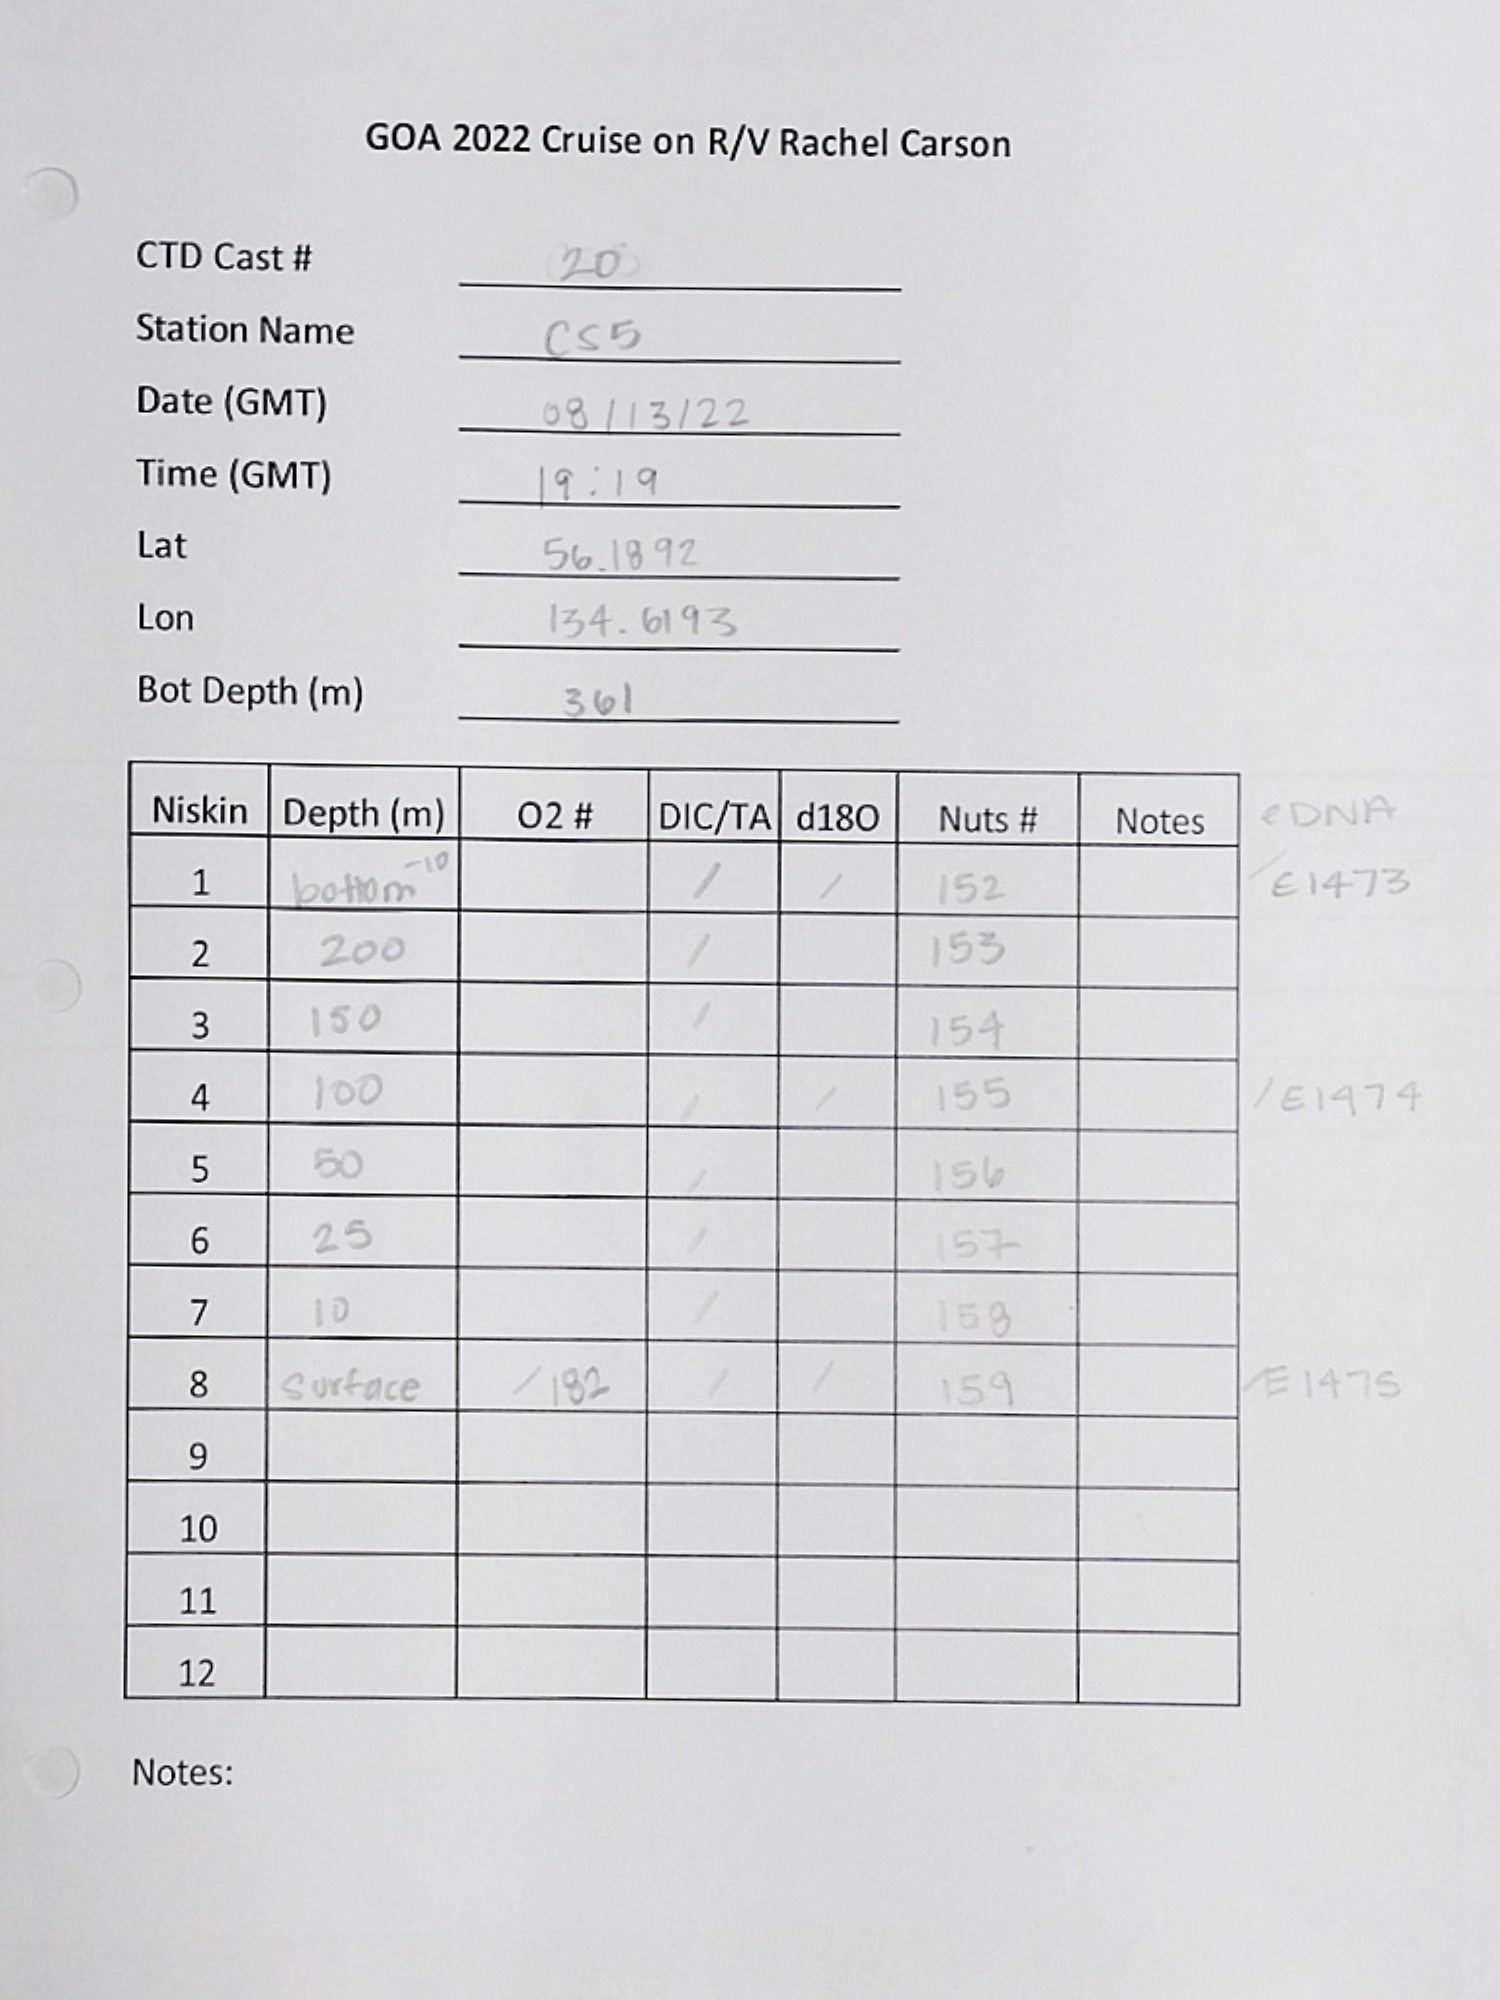 GOA 2022 Cruise on R/V Rachel Carson
CTD Cast # 20
Station Name CS5
Date (GMT) 08/13/22
Time (GMT) 19:19
Lat 56.1892
Lon 134.6193
Bot Depth (m) 361
Niskin Depth (m) O2 # DIC/TA d18O Nuts # Notes eDNA
1 bottom -10 / / 152 / E1473
2 200 / 153
3 150 / 154
4 100 / / 155 / E1474
5 50 / 156
6 25 / 157
7 10 / 158
8 surface / 182 / / 159 / E1475
9
10
11
12
Notes: